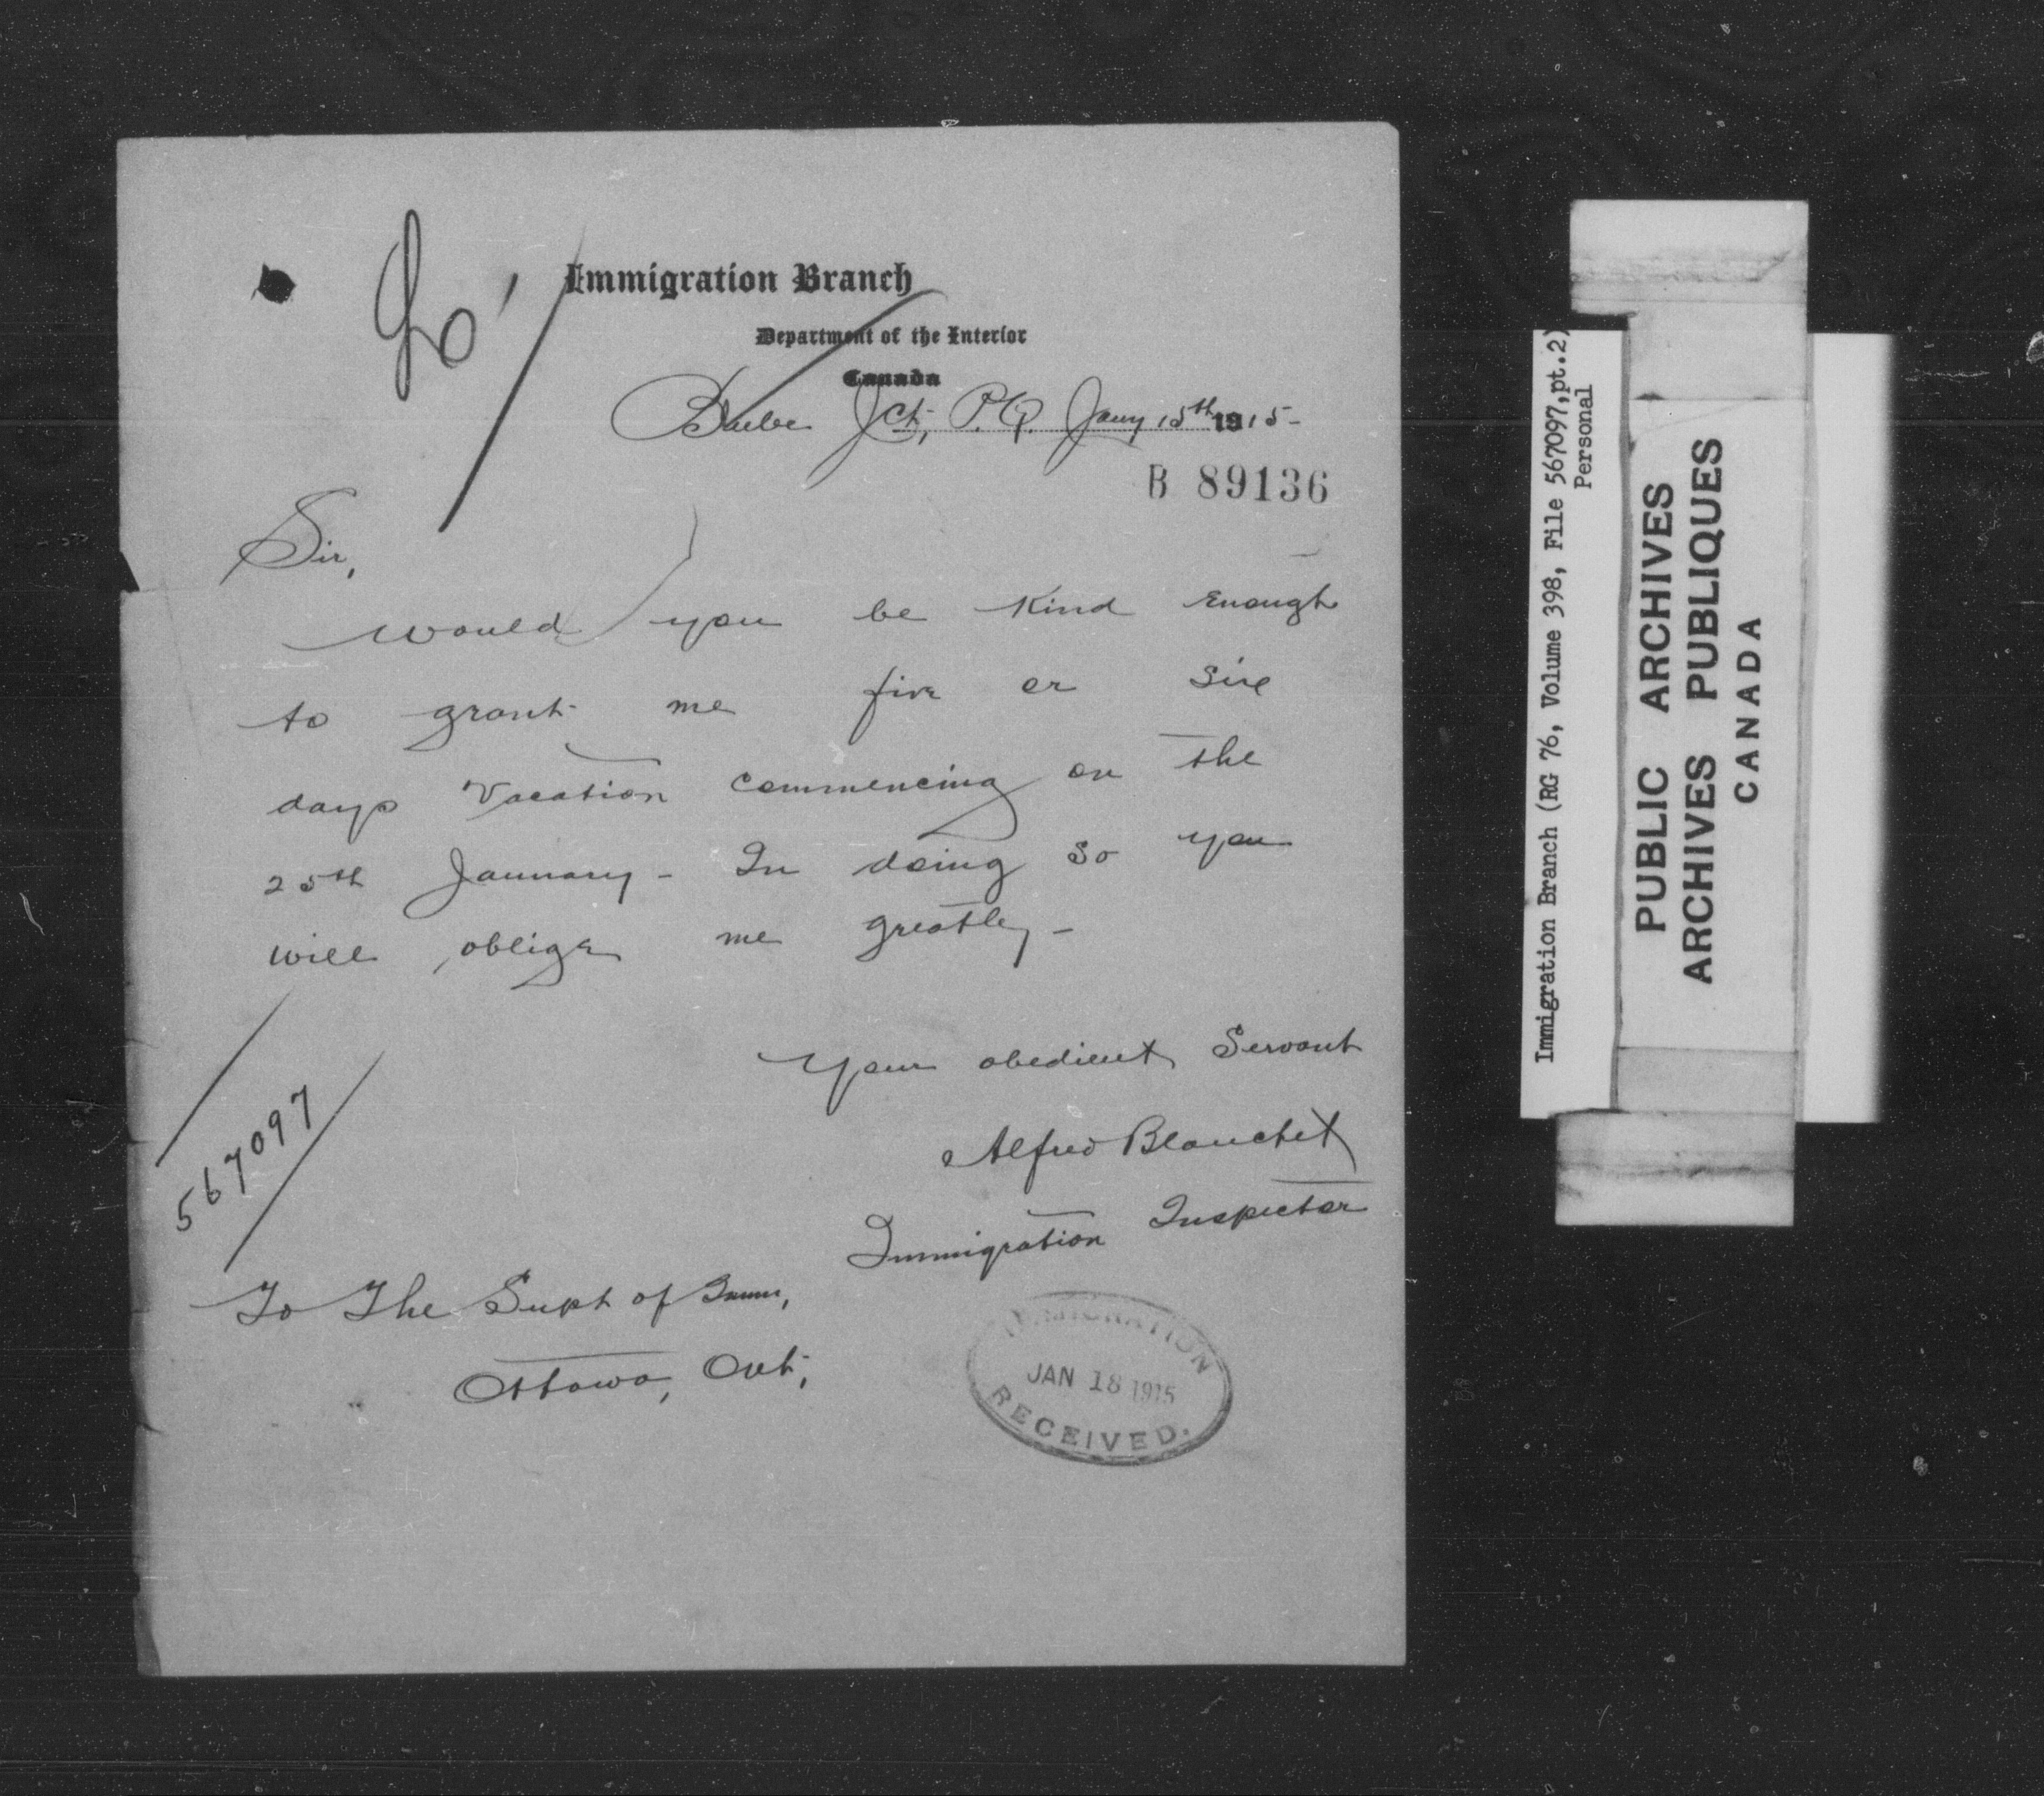 Immigration Branch
Department of the Interior
Canada
Jct, P.Q. Jany 15th 1915-
B 89136
Sir,
Would you be Kind Enough
to grant me five or six
days Vacation commencing on the
25th January - In doing so you
will oblige me greatly -
Your obedient Servant
Alfred Blanchet
Immigration Inspector
567097
To The Supt of Imm,
Ottawa, Ont,
IMMIGRATION
JAN 18 1915
RECEIVED.
Immigration Branch (RG 76, Volume 398, File 567097,pt.2)
Personal
PUBLIC ARCHIVES
ARCHIVES PUBLIQUES
CANADA